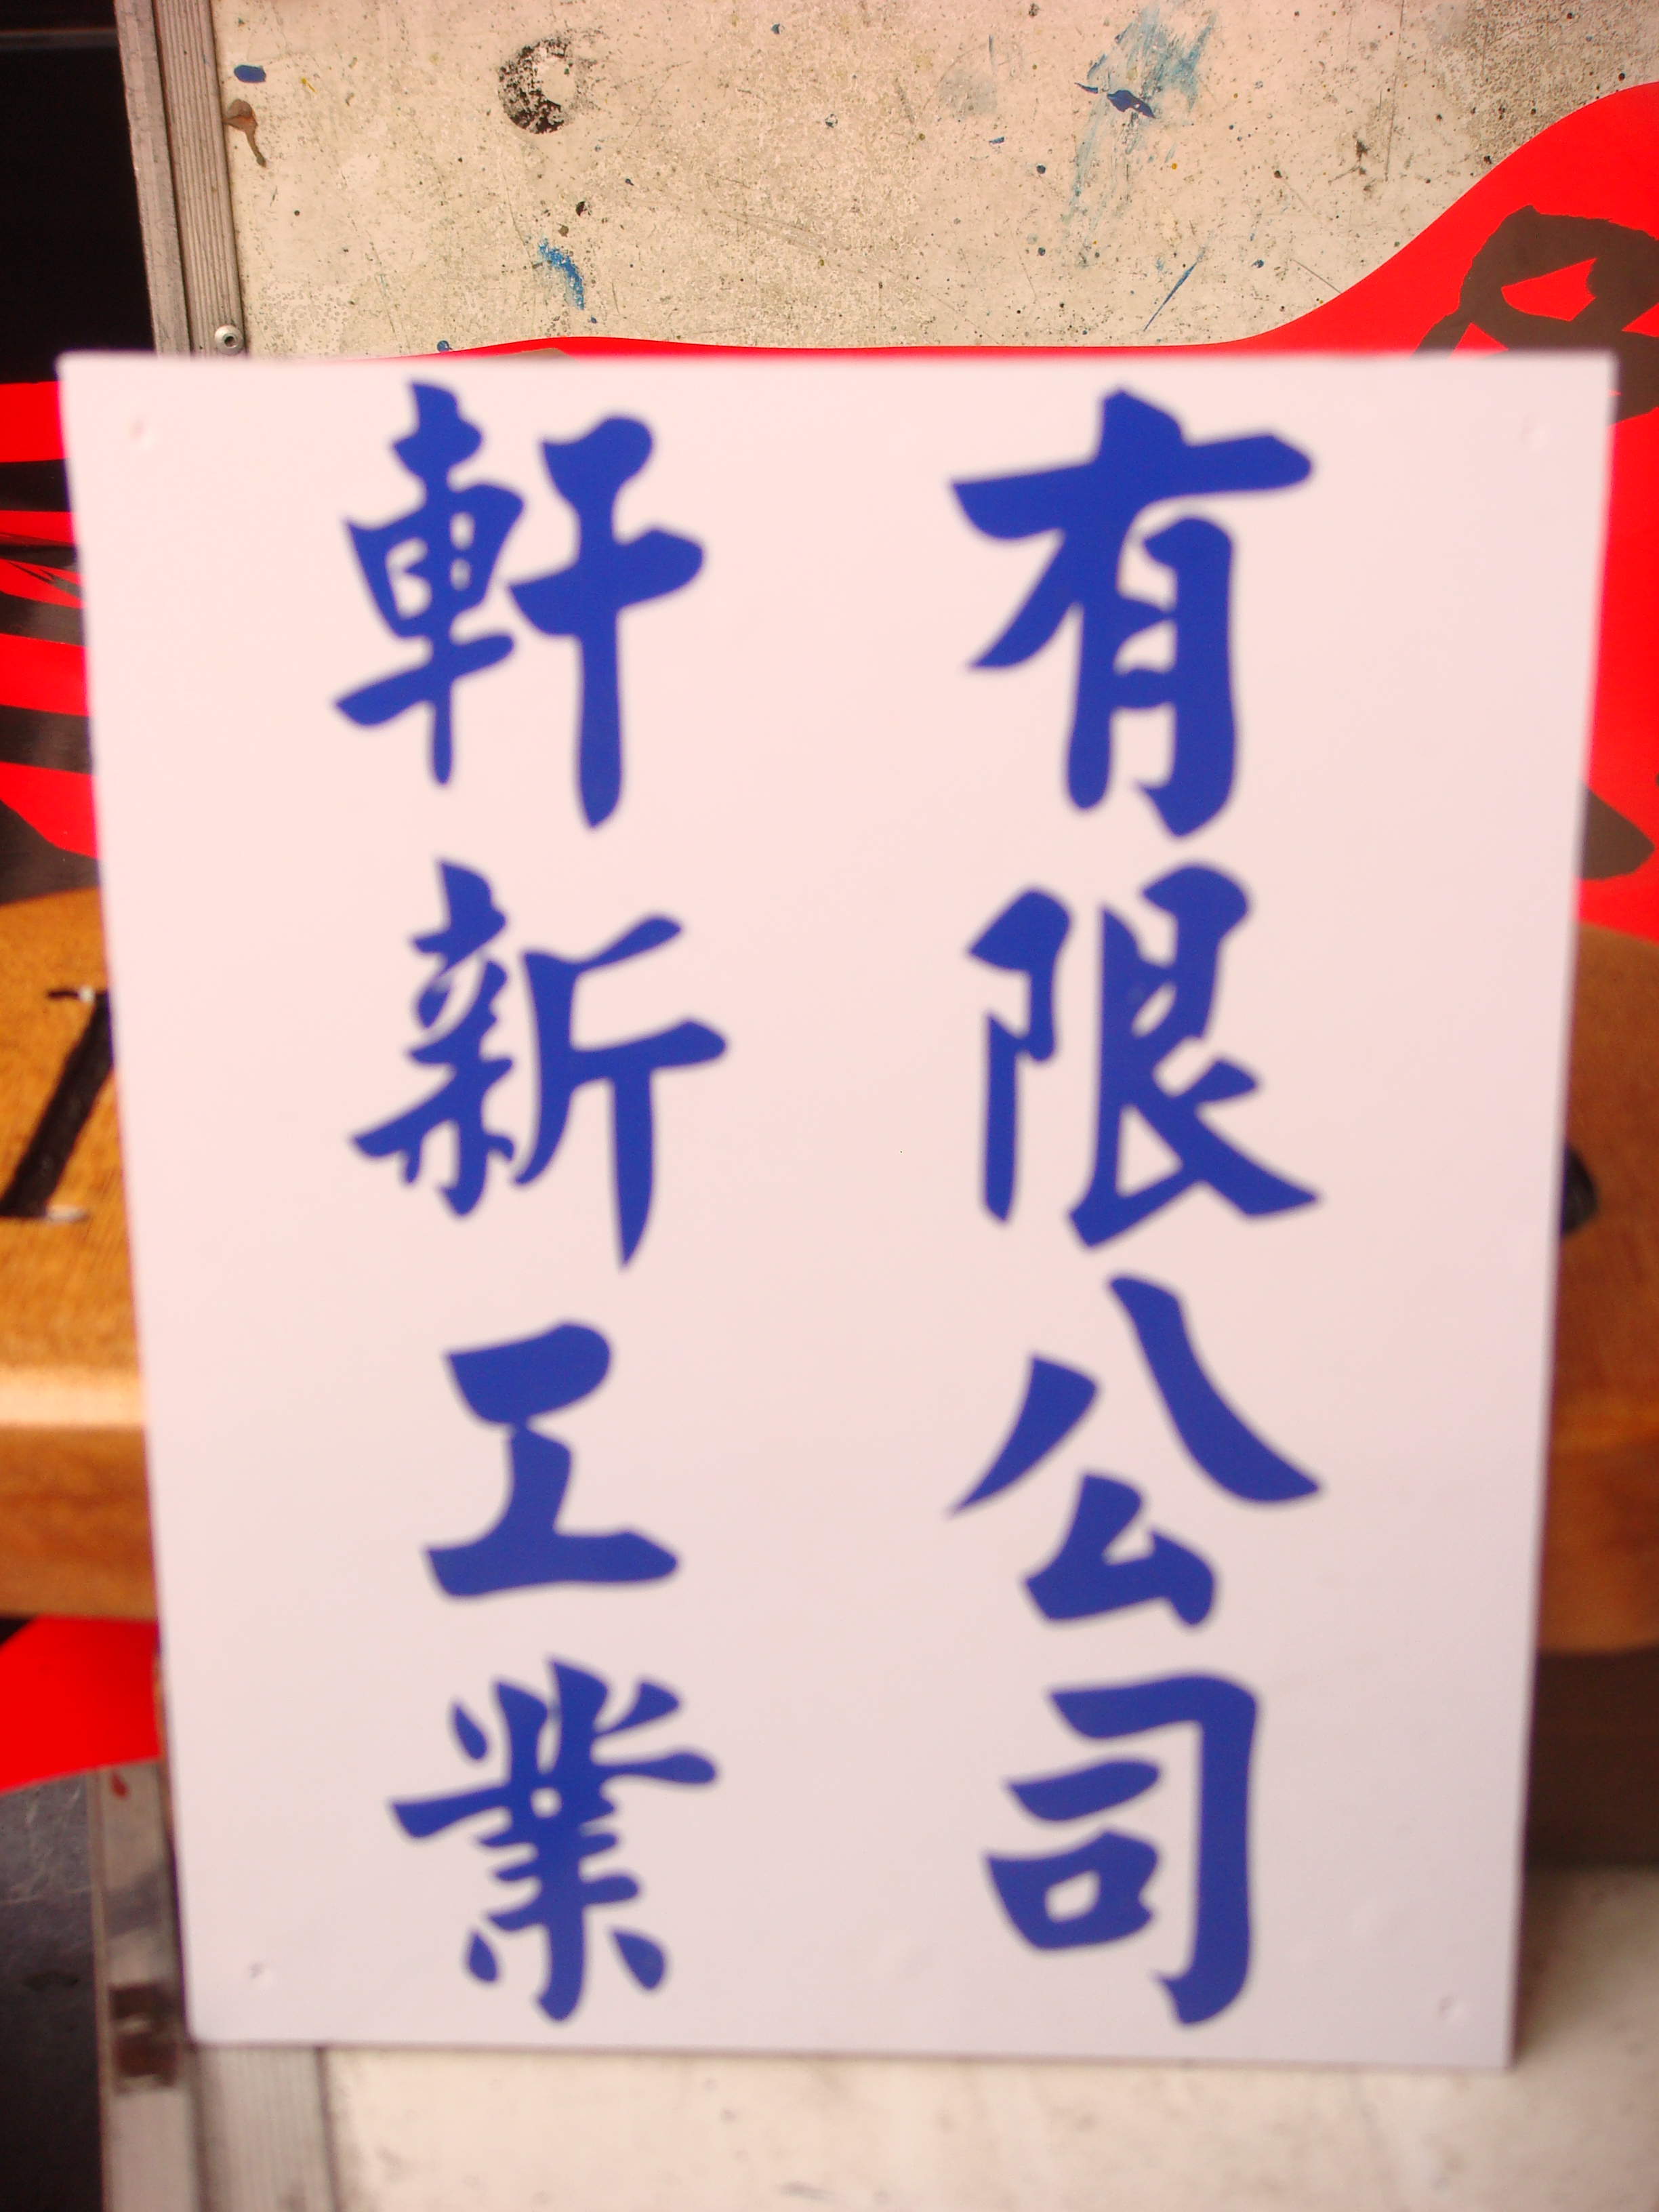 軒新工業
有限公司